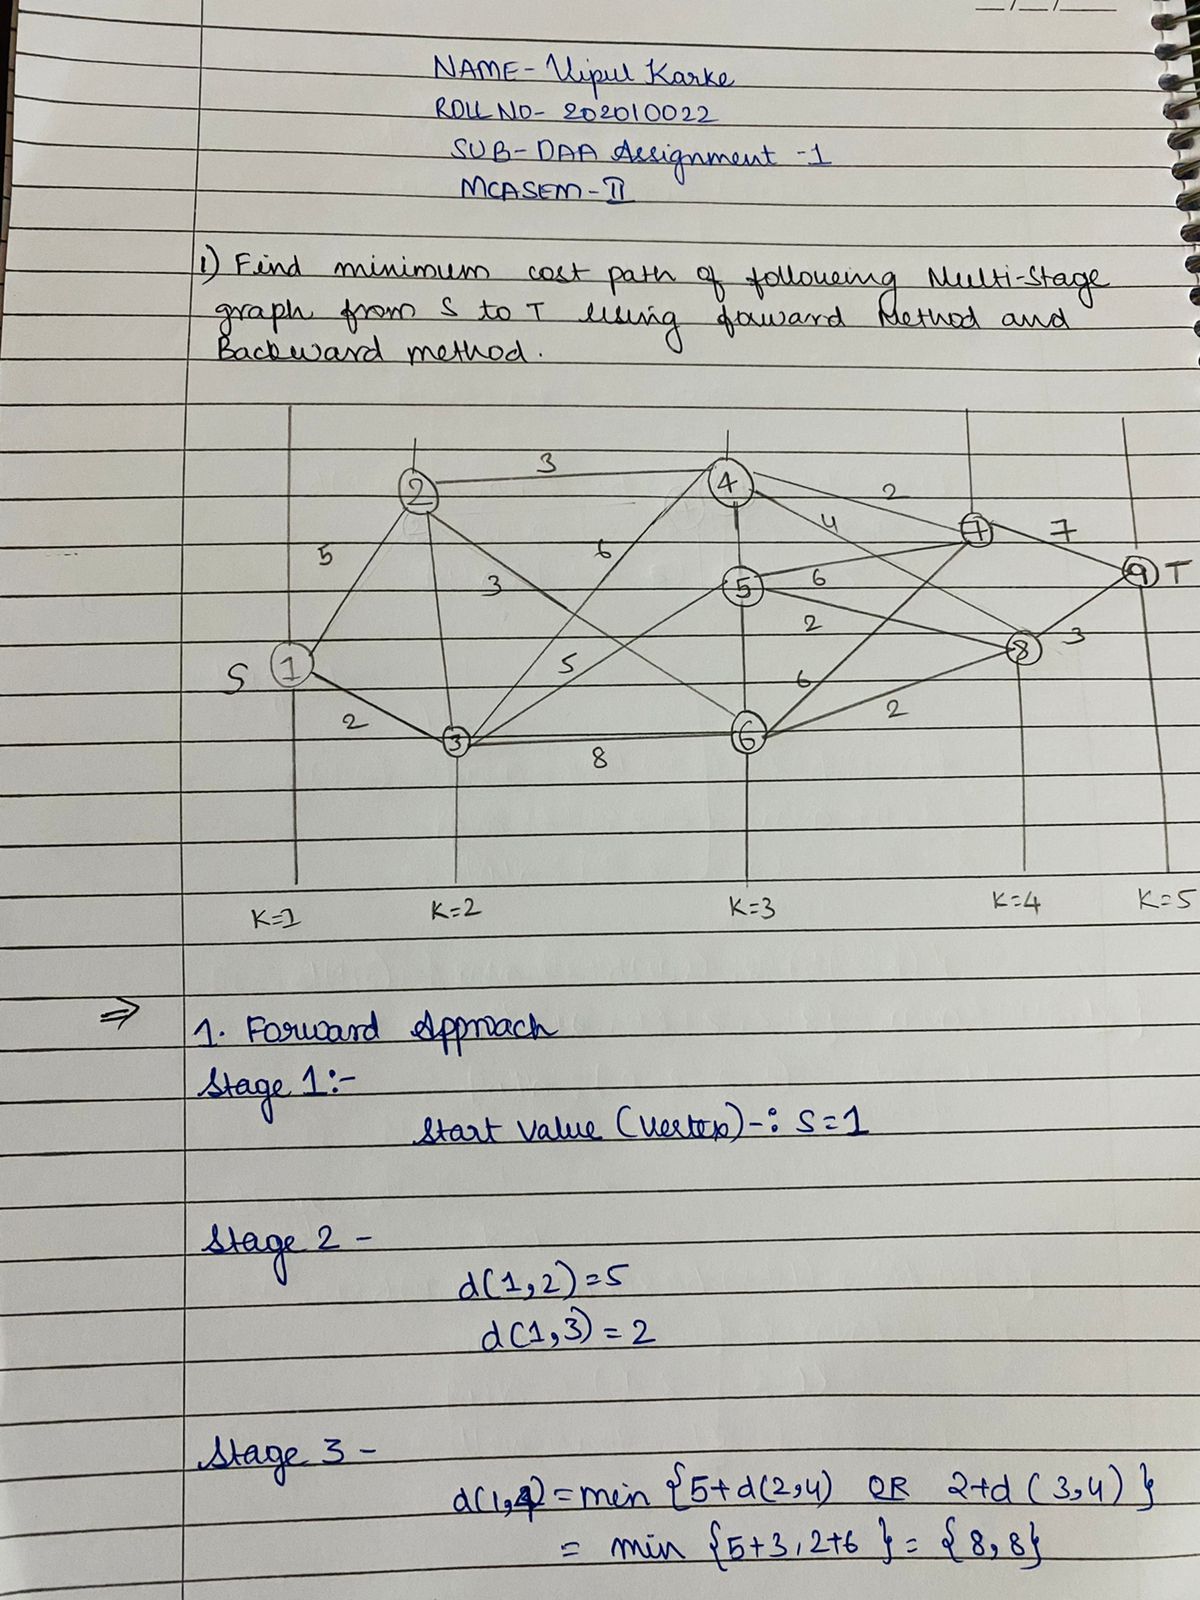 __/__/____
NAME- Vipul Karke
ROLL NO- 202010022
SUB-DAA Assignment -1
MCASEM-II
1) Find minimum cost path of following Multi-Stage
graph from S to T using foward Method and
Backward method.
2 3 4 2
4 7 7
5 6 3 5 6 9 T
2
S 1 5 8 3
6
2 3 8 6 2
K=1 K=2 K=3 K=4 K=5
⇒ 1. Forward Approach
Stage 1:-
Start value (Vertex)-: S=1
Stage 2 -
d(1,2)=5
d(1,3)=2
Stage 3 -
d(1,4)=min {5+d(2,4) OR 2+d(3,4)}
= min {5+3,2+6} = {8,8}